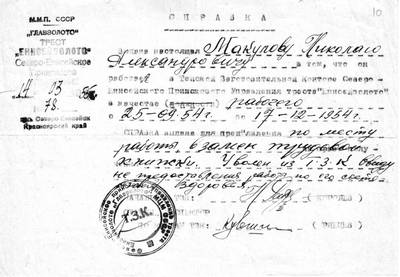 10
СПРАВКА
М.М.П. СССР
"ГЛАВЗОЛОТО"
ТРЕСТ
"ЕНИСЕЙЗОЛОТО"
Северо-Енисейское
17 03
78.
Северо-Енисейск
Красноярский край
Выдана настоящая Макулову Николаю
Александровичу в том, что он
работал в Тейской Заготовительной Конторе Северо-
Енисейского Приискового Управления треста "Енисейзолото"
в качестве рабочего
с 25-09.54г по 17-12-1954г.
СПРАВКА выдана для пред'явления по месту
работы взамен трудовой
книжки. Уволен из Т.З.К ввиду
не предоставления работ по его состо-
Здоровья.
Т.З.К.